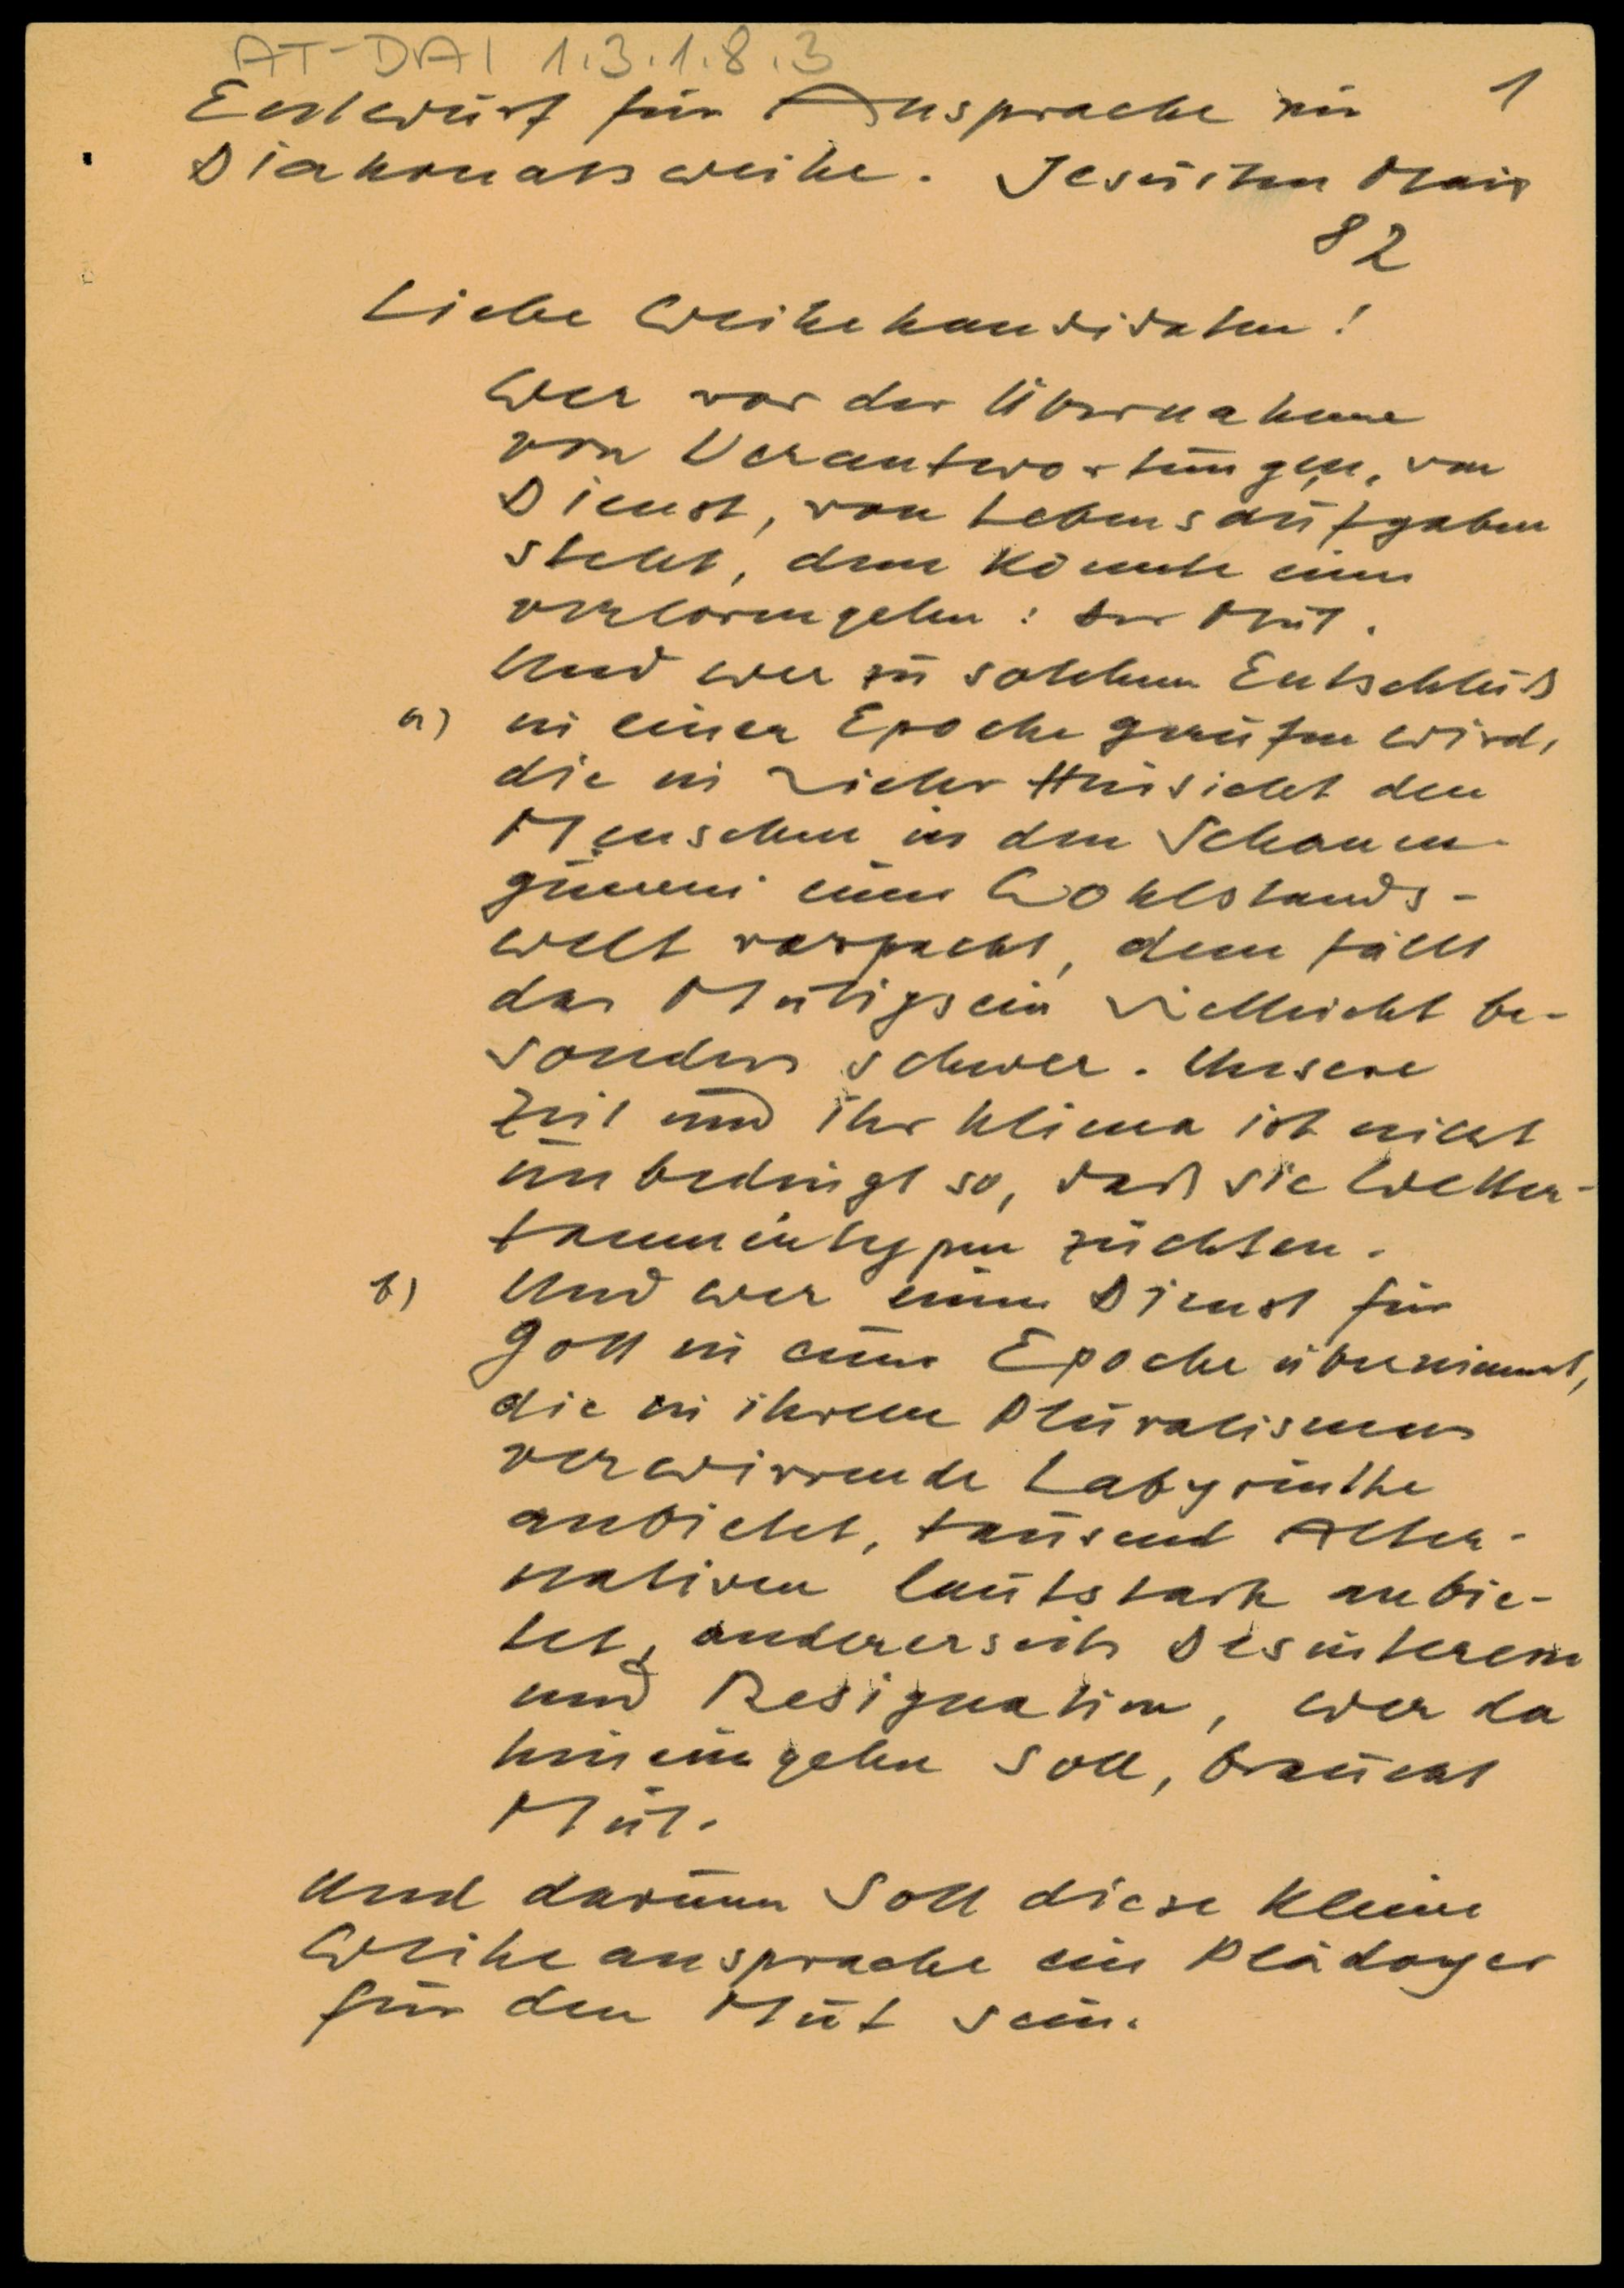 AT-DAI 1.3.1.8.3
Entwurf für Ansprache zur 1
Diakonatsweihe. Jesuiten März
82
Liebe Weihekandidaten!
Wer vor der Übernahme
von Verantwortungen, von
Dienst, von Lebensaufgaben
steht, dem könnte eines
verlorengehen: der Mut.
Und wer zu solchem Entschluß
a) in einer Epoche gerufen wird,
die in vieler Hinsicht den
Menschen in den Schaum-
gummi einer Wohlstands-
welt verpackt, dem fällt
das Mutigsein vielleicht be-
sonders schwer. Unsere
Zeit und ihr Klima ist nicht
unbedingt so, daß sie Wetter-
tannentypen züchten.
b) Und wer einen Dienst für
Gott in einer Epoche übernimmt,
die in ihrem Pluralismus
verwirrende Labyrinthe
anbietet, tausend Alter-
nativen lautstark anbie-
tet, andererseits Desinteresse
und Resignation, wer da
hineingehen soll, braucht
Mut.
Und darum soll diese kleine
Weiheansprache ein Plädoyer
für den Mut sein.